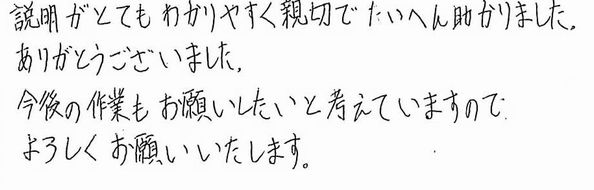 説明がとてもわかりやすく親切でたいへん助かりました。
ありがとうございました。
今後の作業もお願いしたいと考えていますので
よろしくお願いいたします。